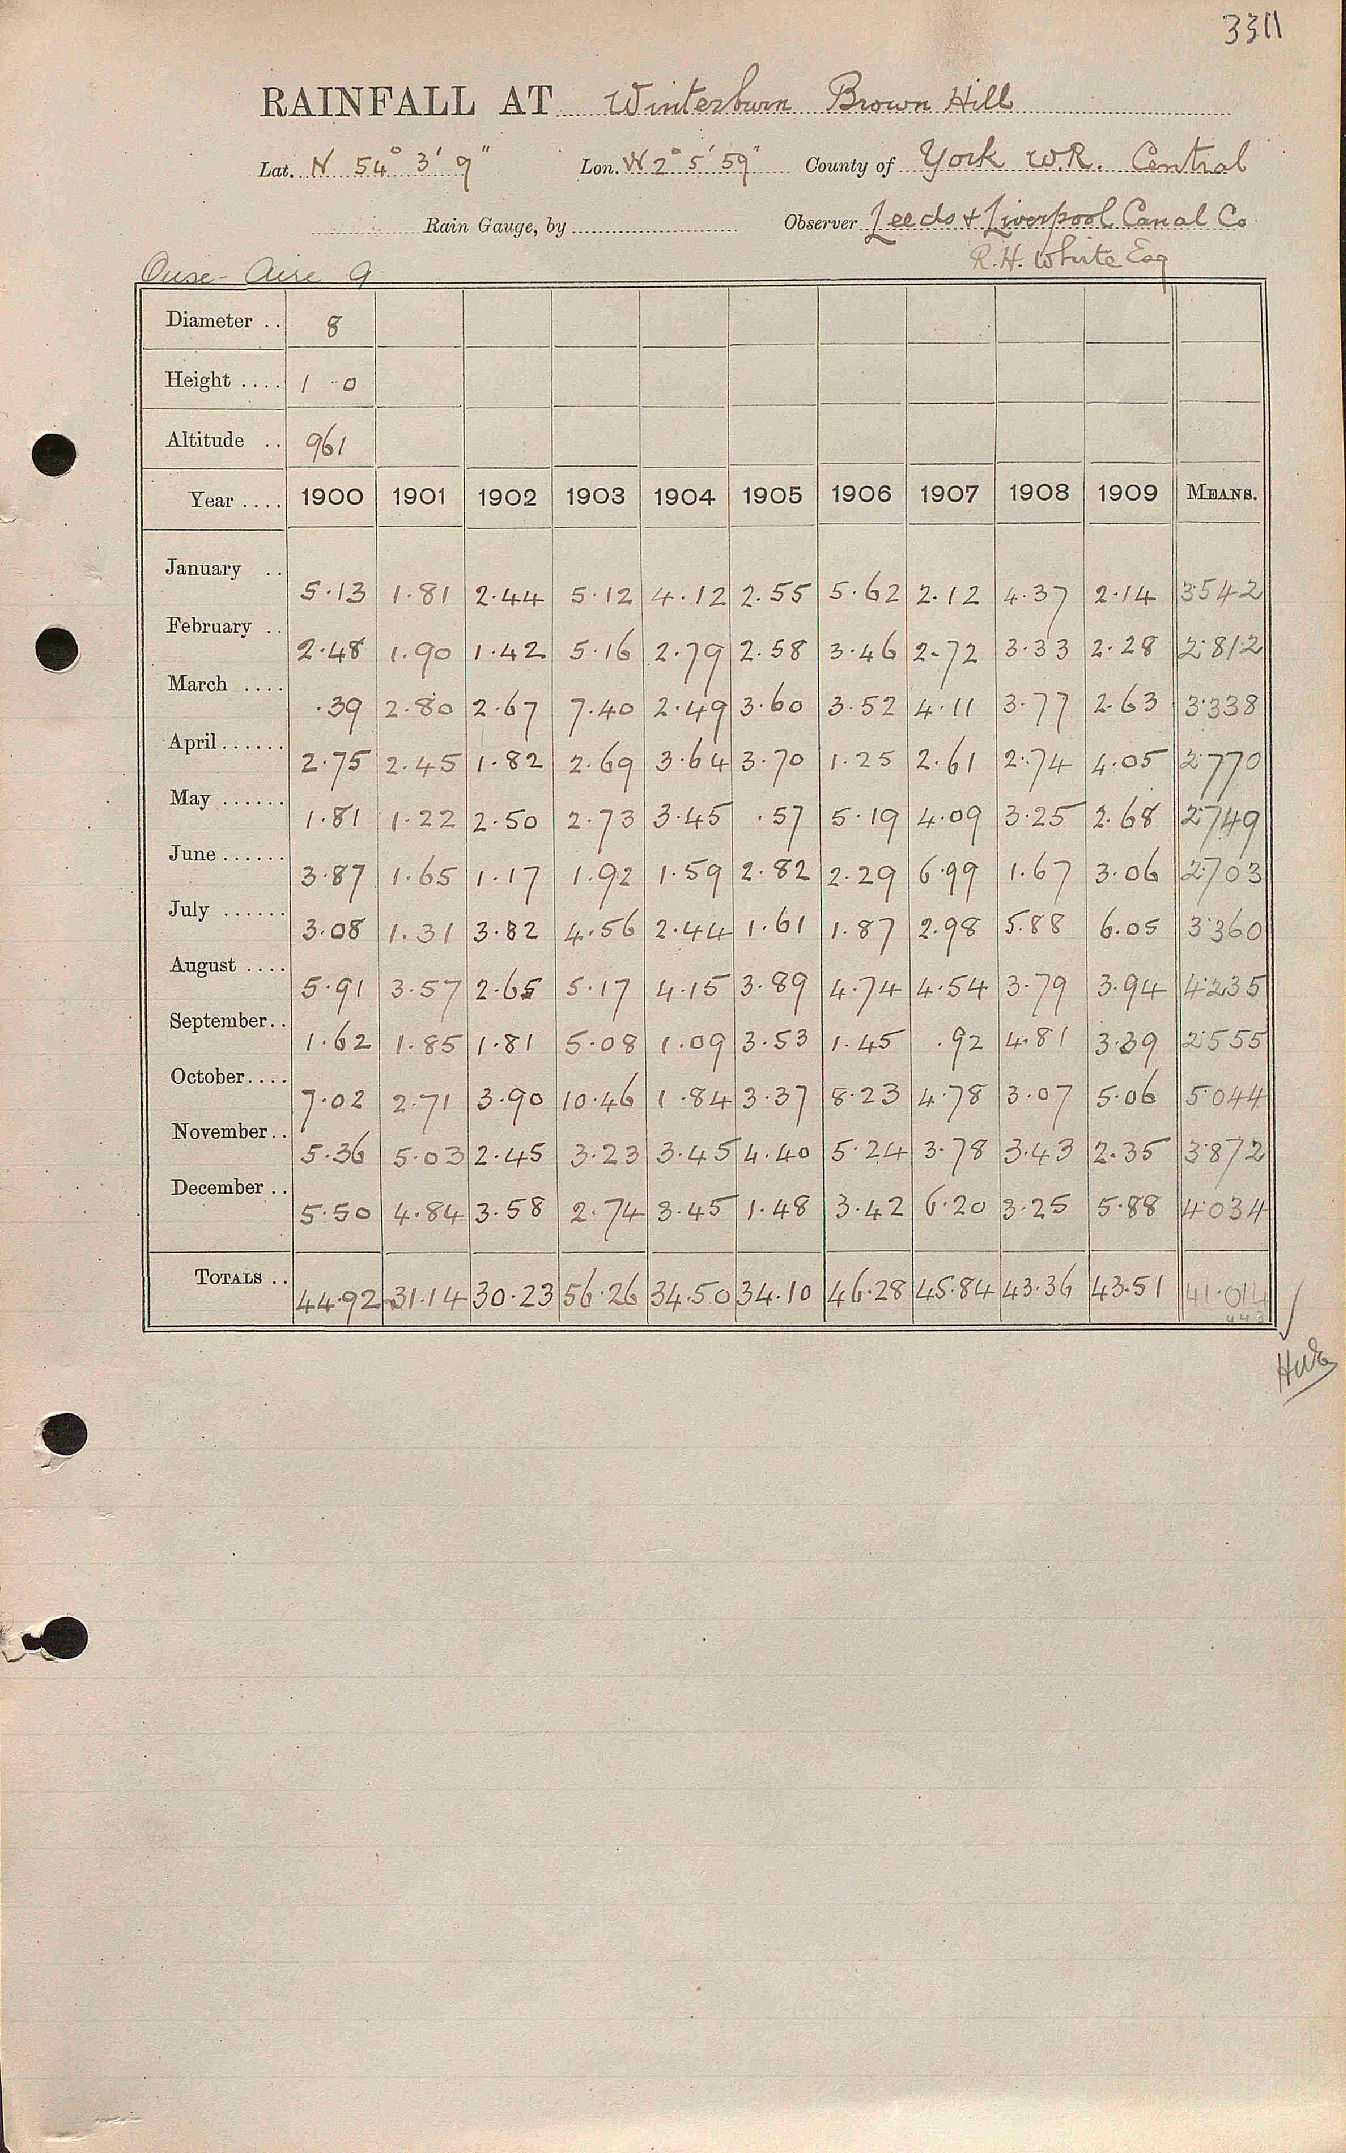 3311
RAINFALL AT Winterburn Brown Hill
Lat. N 54° 3' 9" Lon. W 2° 5' 59" County of York W.R. Central
Rain Gauge, by Observer Leeds & Liverpool Canal Co
R.H. White Esq
Ouse - Aire 9
Diameter .. 8
Height .... 1 - 0
Altitude .. 961
Year .... 1900 1901 1902 1903 1904 1905 1906 1907 1908 1909 MEANS.
January .. 5.13 1.81 2.44 5.12 4.12 2.55 5.62 2.12 4.37 2.14 3.542
February .. 2.48 1.90 1.42 5.16 2.79 2.58 3.46 2.72 3.33 2.28 2.812
March .... .39 2.80 2.67 7.40 2.49 3.60 3.52 4.11 3.77 2.63 3.338
April ...... 2.75 2.45 1.82 2.69 3.64 3.70 1.25 2.61 2.74 4.05 2.770
May ...... 1.81 1.22 2.50 2.73 3.45 .57 5.19 4.09 3.25 2.68 2.749
June ...... 3.87 1.65 1.17 1.92 1.59 2.82 2.29 6.99 1.67 3.06 2.703
July ...... 3.08 1.31 3.82 4.56 2.44 1.61 1.87 2.98 5.88 6.05 3.360
August .... 5.91 3.57 2.65 5.17 4.15 3.89 4.74 4.54 3.79 3.94 4.235
September .. 1.62 1.85 1.81 5.08 1.09 3.53 1.45 .92 4.81 3.39 2.555
October .... 7.02 2.71 3.90 10.46 1.84 3.37 8.23 4.78 3.07 5.06 5.044
November .. 5.36 5.03 2.45 3.23 3.45 4.40 5.24 3.78 3.43 2.35 3.872
December .. 5.50 4.84 3.58 2.74 3.45 1.48 3.42 6.20 3.25 5.88 4.034
TOTALS .. 44.92 31.14 30.23 56.26 34.50 34.10 46.28 45.84 43.36 43.51 41.014